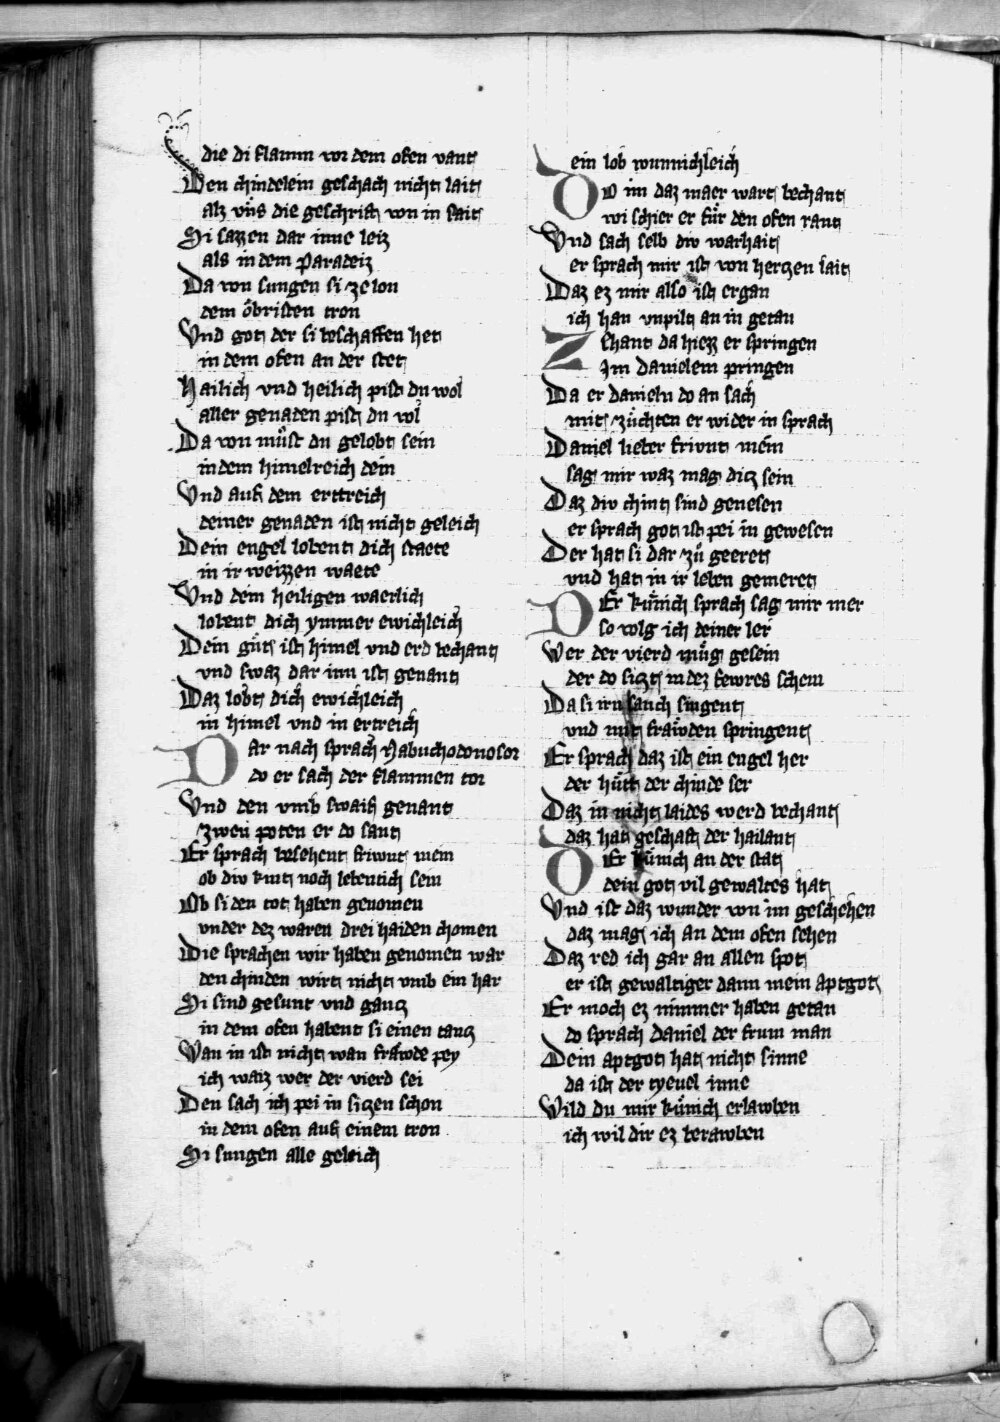 die di flamm vor dem ofen vant
Den chindelein geschach nicht lait
alz vns die geschrift von in sait
Si sazzen dar inne leiz
als in dem Paradeiz
Da von sungen si ze lon
dem öbristen tron
Vnd got der si beschaffen het
in dem ofen an der stet
Hailich vnd heilich pist du wol
aller genaden pist du vol
Da von mu̍st du gelobt sein
in dem himelreich dein
Vnd auf dem erttreich
deiner genaden ist nicht geleich
Dein engel lobent dich staete
in ir weizzen waete
Vnd dein heiligen waerlich
lobent dich ymmer ewichleich
Dein gu̍t ist himel vnd erd bechant
vnd swaz dar inn ist genant
Daz lobt dich ewichleich
in himel vnd in ertreich
Dar nach sprach Nabuchodonosor
do er sach der flammen tor
Vnd den vmb swaif genant
zwen poten er do sant
Er sprach besehent friwnt mein
ob div kint noch lebentich sein
Ob si den tot haben genomen
vnder dez waren drei haiden chomen
Die sprachen wir haben genomen war
den chinden wirt nicht vmb ein har
Si sind gesunt vnd gancz
in dem ofen habent si einen tancz
Wan in ist nicht wan fräwde pey
ich waiz wer der vierd sei
Den sach ich pei in siczen schon
in dem ofen auf einem tron
Si sungen alle geleich
ein lob wunnichleich
Do im daz maer wart bechant
wi schier er für den ofen rant
Vnd sach selb div warhait
er sprach mir ist von herczen lait
Daz ez mir also ist ergan
ich han vnpilt an in getan
Zehant da hiezz er springen
Im danielem pringen
Da er danieln do an sach
mit züchten er wider in sprach
Daniel lieber friwnt mein
sag mir waz mag dicz sein
Daz div chint sind genesen
er sprach got ist pei in gewesen
Der hat si dar zu̍ geeret
vnd hat in ir leben gemeret
Der künich sprach sag mir mer
so volg ich deiner ler
Wer der vierd müg gesein
der do siczt in dez fewres schein
Da si inn sanch singent
vnd mit fräwden springent
Er sprach daz ist ein engel her
der hütt der chinde ser
Daz in nicht laides werd bechant
daz hat geschaft der hailant
Der künich an der stat
dein got vil gewaltes hat
Vnd ist daz wunder von im geschehen
daz mag ich an dem ofen sehen
Daz red ich gar an allen spot
er ist gewaltiger dann mein aptgot
Er moch ez nimmer haben getan
do sprach daniel der frum man
Dein aptgot hat nicht sinne
da ist der tyeuel inne
Wild du mir künich erlawben
ich wil dir ez berawben